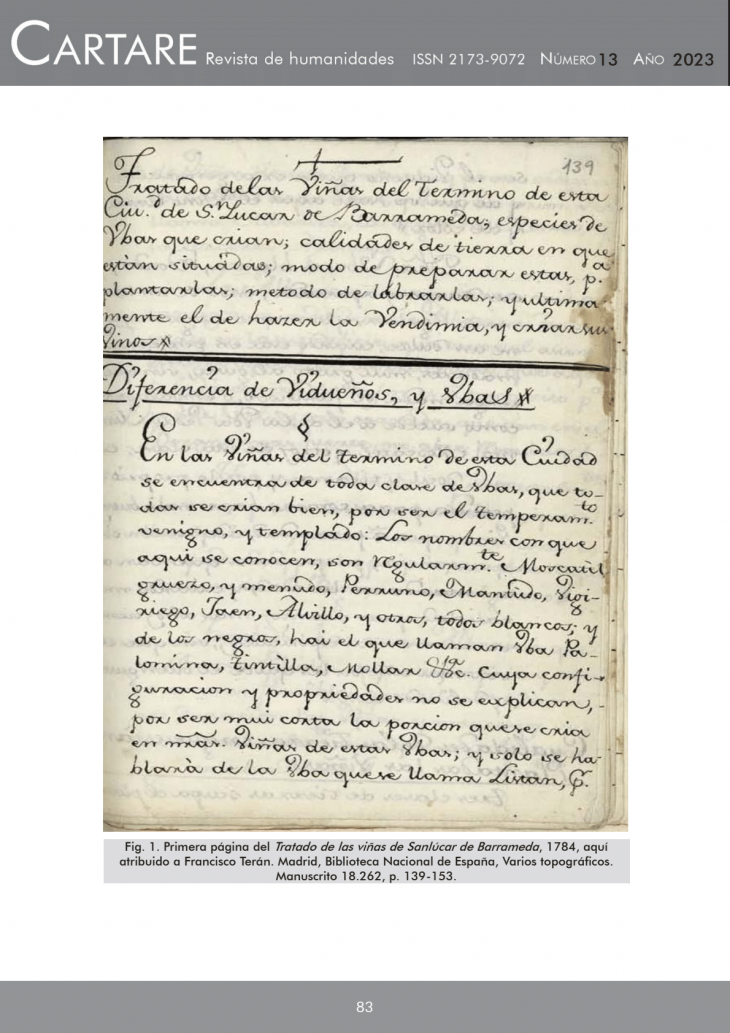 CARTARE Revista de humanidades ISSN 2173-9072 NÚMERO 13 AÑO 2023
139
Tratado de las Viñas del Termino de esta
Ciu.d de S.n Lucar de Barrameda; especies de
Vbas que crian; calidades de tierra en que
estàn situadas; modo de preparar estas, p.a
plantarlas; metodo de labrarlas; y ultima
mente el de hazer la Vendimia, y criar sus
Vinos
Diferencia de Vidueños, y Vbas
§
En las Viñas del termino de esta Cuidad
se encuentra de toda clase de Vbas, que to-
das se crian bien, por ser el temperam.to
venigno, y templado: Los nombres con que
aqui se conocen, son regularm.te Moscatel
gruezo, y menudo, Perruno, Mantudo, Vigi-
riego, Jaen, Alvillo, y otros, todos blancos; y
de los negros, hai el que llaman Vba Pa-
lomina, tintilla, Mollar &c. Cuya confi-
guracion y propriedades no se explican,
por ser mui corta la porcion que se cria
en nras. Viñas de estas Vbas; y solo se ha-
blarà de la Vba que se llama Listan,
Fig. 1. Primera página del Tratado de las viñas de Sanlúcar de Barrameda, 1784, aquí
atribuido a Francisco Terán. Madrid, Biblioteca Nacional de España, Varios topográficos.
Manuscrito 18.262, p. 139-153.
83